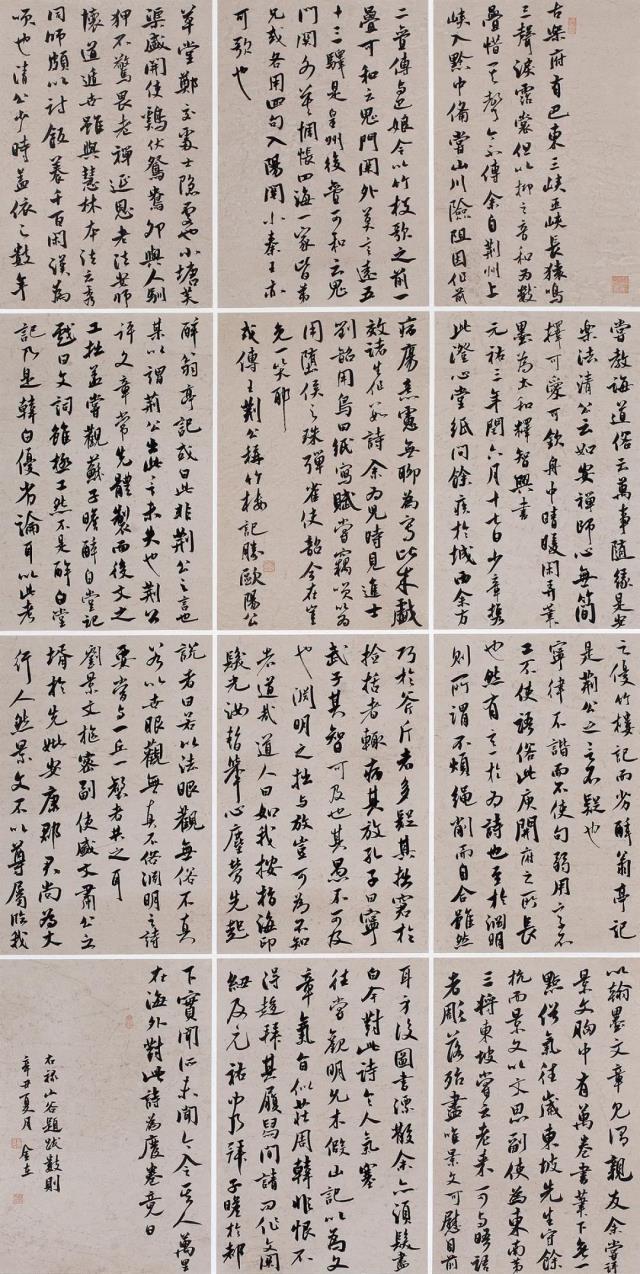 古樂府有巴東三峽巫峽長猿鳴
三聲淚霑裳但以抑之音和為數
疊惜其聲今不傳余自荊州上
峽入黔中備嘗山川險阻因作前
二疊傳與巴娘令以竹枝歌之前一
疊可和云鬼門關外莫言遠五
十三驛是皇州後疊可和云鬼
門関外莫惆悵四海一家皆弟
兄或各用四句入陽関小秦王亦
可歌也
草堂鄭交處士隱處也小塘芙
渠盛開使鷄伏鴛鴦卵與人馴
狎不驚畏老禪延恩老法安師
懷道遁世雖與慧林本法云秀
同師頗以討飯養千百閑漢為
順也清公少時蓋依之數年
嘗教誨道俗云萬事隨緣是安
樂法清公云如安禪師心無簡
擇可愛可欽舟中晴暖閑弄筆
墨為太和釋智興書
元祐三年閏六月十七日少章携
此澄心堂紙問餘疾於城西余方
病瘍意慮無聊為寫此朱戲
效諸生作省詩余為兒時見進士
劉韶用烏田紙寫賦嘗竊嘆以為
用隋侯之珠彈雀使韶今在豈
免一笑耶
或傳王荊公稱竹樓記勝歐陽公
醉翁亭記或曰此非荊公之言也
某以謂荊公出此言未失也荊公
評文章常先體製而後文之
工拙蓋嘗觀蘇子瞻醉白堂記
戲曰文詞雖極工然不是醉白堂
記乃是韓白優劣論耳以此考
之優竹樓記而劣醉翁亭記
是荊公之言不疑也
寧律不諧而不使句弱用字不
工不使語俗此庾開府之所長
也然有意於為詩也至於淵明
則所謂不煩繩削而自合雖然
巧於斧斤者多疑其拙窘於
檢括者輒病其放孔子曰寧
武子其智可及也其愚不可及
也淵明之拙與放豈可為不知
者道哉道人曰如我按指海印
發光汝暫舉心塵勞先起
說者曰若以法眼觀無俗不真
若以世眼觀無真不俗淵明之詩
要當與一丘一壑者共之耳
劉景文樞密副使盛文肅公之
壻於先妣安康郡君尚為丈
行人然景文不以尊屬臨我
以翰墨文章見謂親友余嘗評
景文胸中有萬卷書筆下無一
點俗氣往歲東坡先生守餘
杭而景文以文思副使為東南第
三將東坡嘗云老來可與晤語
者彫落殆盡唯景文可慰目前
耳方後圖書漂散余亦須髮盡
白今對此詩令人氣塞
往嘗觀明允木假山記以為文
章氣旨似莊周韓非恨不
得趨拜其履舄間請問作文關
紐及元祐中乃拜子瞻於都
下實聞所未聞今令其人萬里
在海外對此詩為廢卷竟日
右錄山谷題跋數則
辛丑夏月 金立